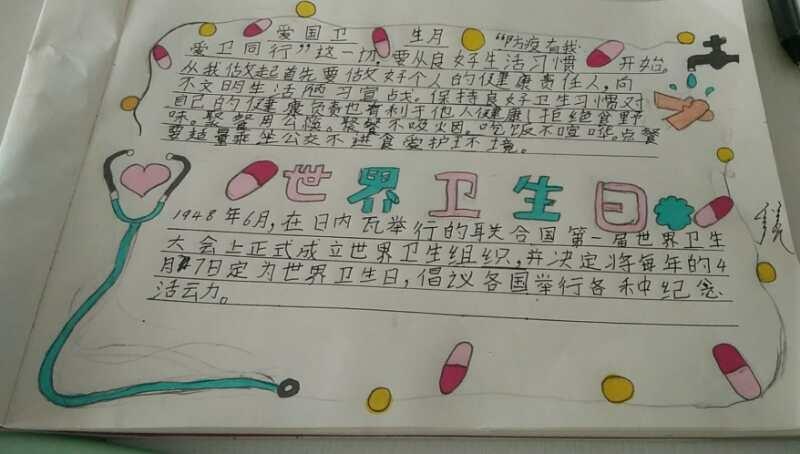 爱国卫 生月 "防疫有我
爱卫同行"这一切要从良好生活习惯 开始。
从我做起首先要做好个人的健康责任人,向
不文明生活陋习宣战。保持良好卫生习惯对
自己的健康负责也有利于他人健康!拒绝食野
味。聚餐用公筷。聚餐不吸烟。吃饭不喧哗。点餐
要适量乘坐公交不进食爱护环境。
世界卫生日
1948年6月,在日内瓦举行的联合国第一届世界卫生
大会上正式成立世界卫生组织,并决定将每年的4
月7日定为世界卫生日,倡议各国举行各种纪念
活动。